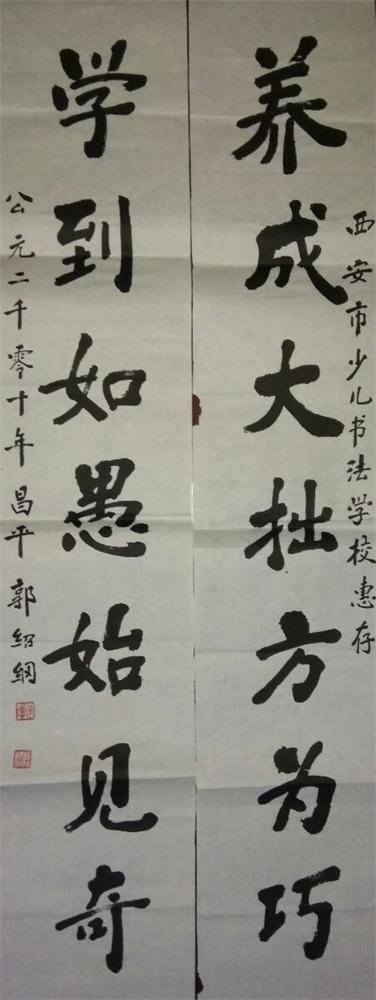 西安市少儿书法学校惠存
养成大拙方为巧
学到如愚始见奇
公元二千零十年昌平郭绍纲